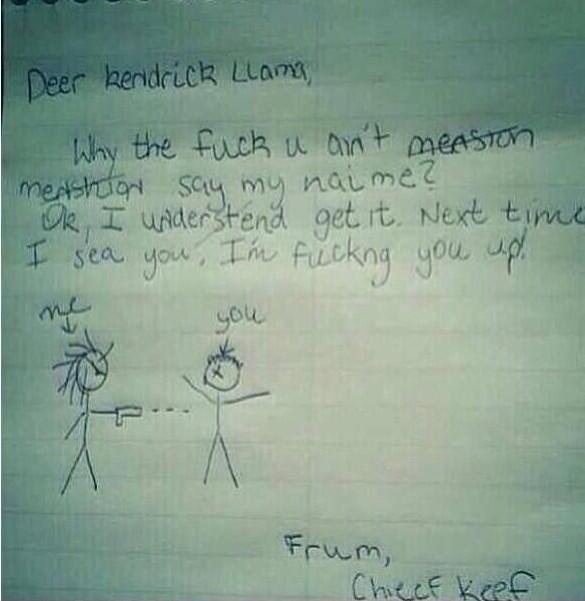 Deer kendrick Llama,
Why the fuck u ain't meastion
menshtion say my naime?
Ok, I understend get it. Next time
I sea you, I'm fuckng you up!
me
you
Frum,
Chieef Keef